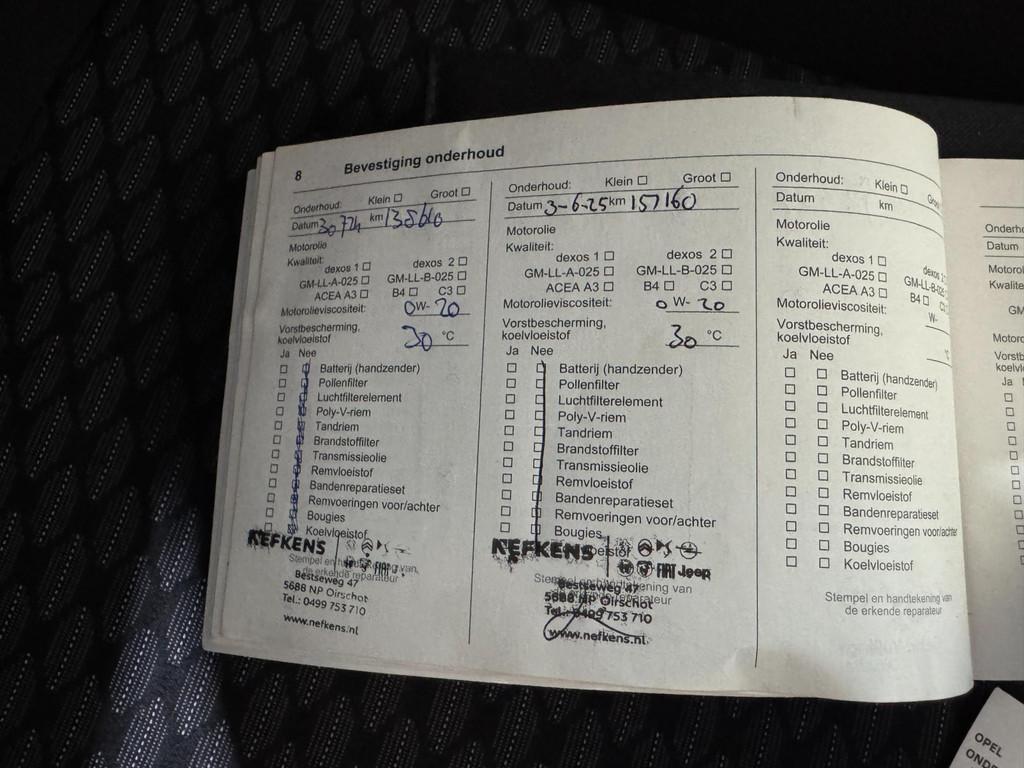 8 Bevestiging onderhoud
Onderhoud: Klein Groot
Datum km
Motorolie
Kwaliteit:
dexos 1 dexos 2
GM-LL-A-025 GM-LL-B-025
ACEA A3 B4 C3
Motorolieviscositeit: 0W-20
Vorstbescherming,
koelvloeistof 30 °C
Ja Nee
Batterij (handzender)
Pollenfilter
Luchtfilterelement
Poly-V-riem
Tandriem
Brandstoffilter
Transmissieolie
Remvloeistof
Bandenreparatieset
Remvoeringen voor/achter
Bougies
Koelvloeistof
NEFKENS
Stempel en handtekening van
de erkende reparateur
Bestseweg 47
5688 NP Oirschot
Tel.: 0499 753 710
www.nefkens.nl
Onderhoud: Klein Groot
Datum 3-6-25 km 157160
Motorolie
Kwaliteit:
dexos 1 dexos 2
GM-LL-A-025 GM-LL-B-025
ACEA A3 B4 C3
Motorolieviscositeit: 0W-20
Vorstbescherming,
koelvloeistof 30 °C
Ja Nee
Batterij (handzender)
Pollenfilter
Luchtfilterelement
Poly-V-riem
Tandriem
Brandstoffilter
Transmissieolie
Remvloeistof
Bandenreparatieset
Remvoeringen voor/achter
Bougies
NEFKENS
FIAT Jeep
Stempel en handtekening van
Bestseweg 47
5688 NP Oirschot
Tel.: 0499 753 710
www.nefkens.nl
Onderhoud: Klein
Datum km
Motorolie
Kwaliteit:
dexos 1 dexos
GM-LL-A-025 GM-LL-B-025
ACEA A3 B4
Motorolieviscositeit: W-
Vorstbescherming,
koelvloeistof
Ja Nee
Batterij (handzender)
Pollenfilter
Luchtfilterelement
Poly-V-riem
Tandriem
Brandstoffilter
Transmissieolie
Remvloeistof
Bandenreparatieset
Remvoeringen voor/achter
Bougies
Koelvloeistof
Stempel en handtekening van
de erkende reparateur
Datum
GM
Ja
OPEL